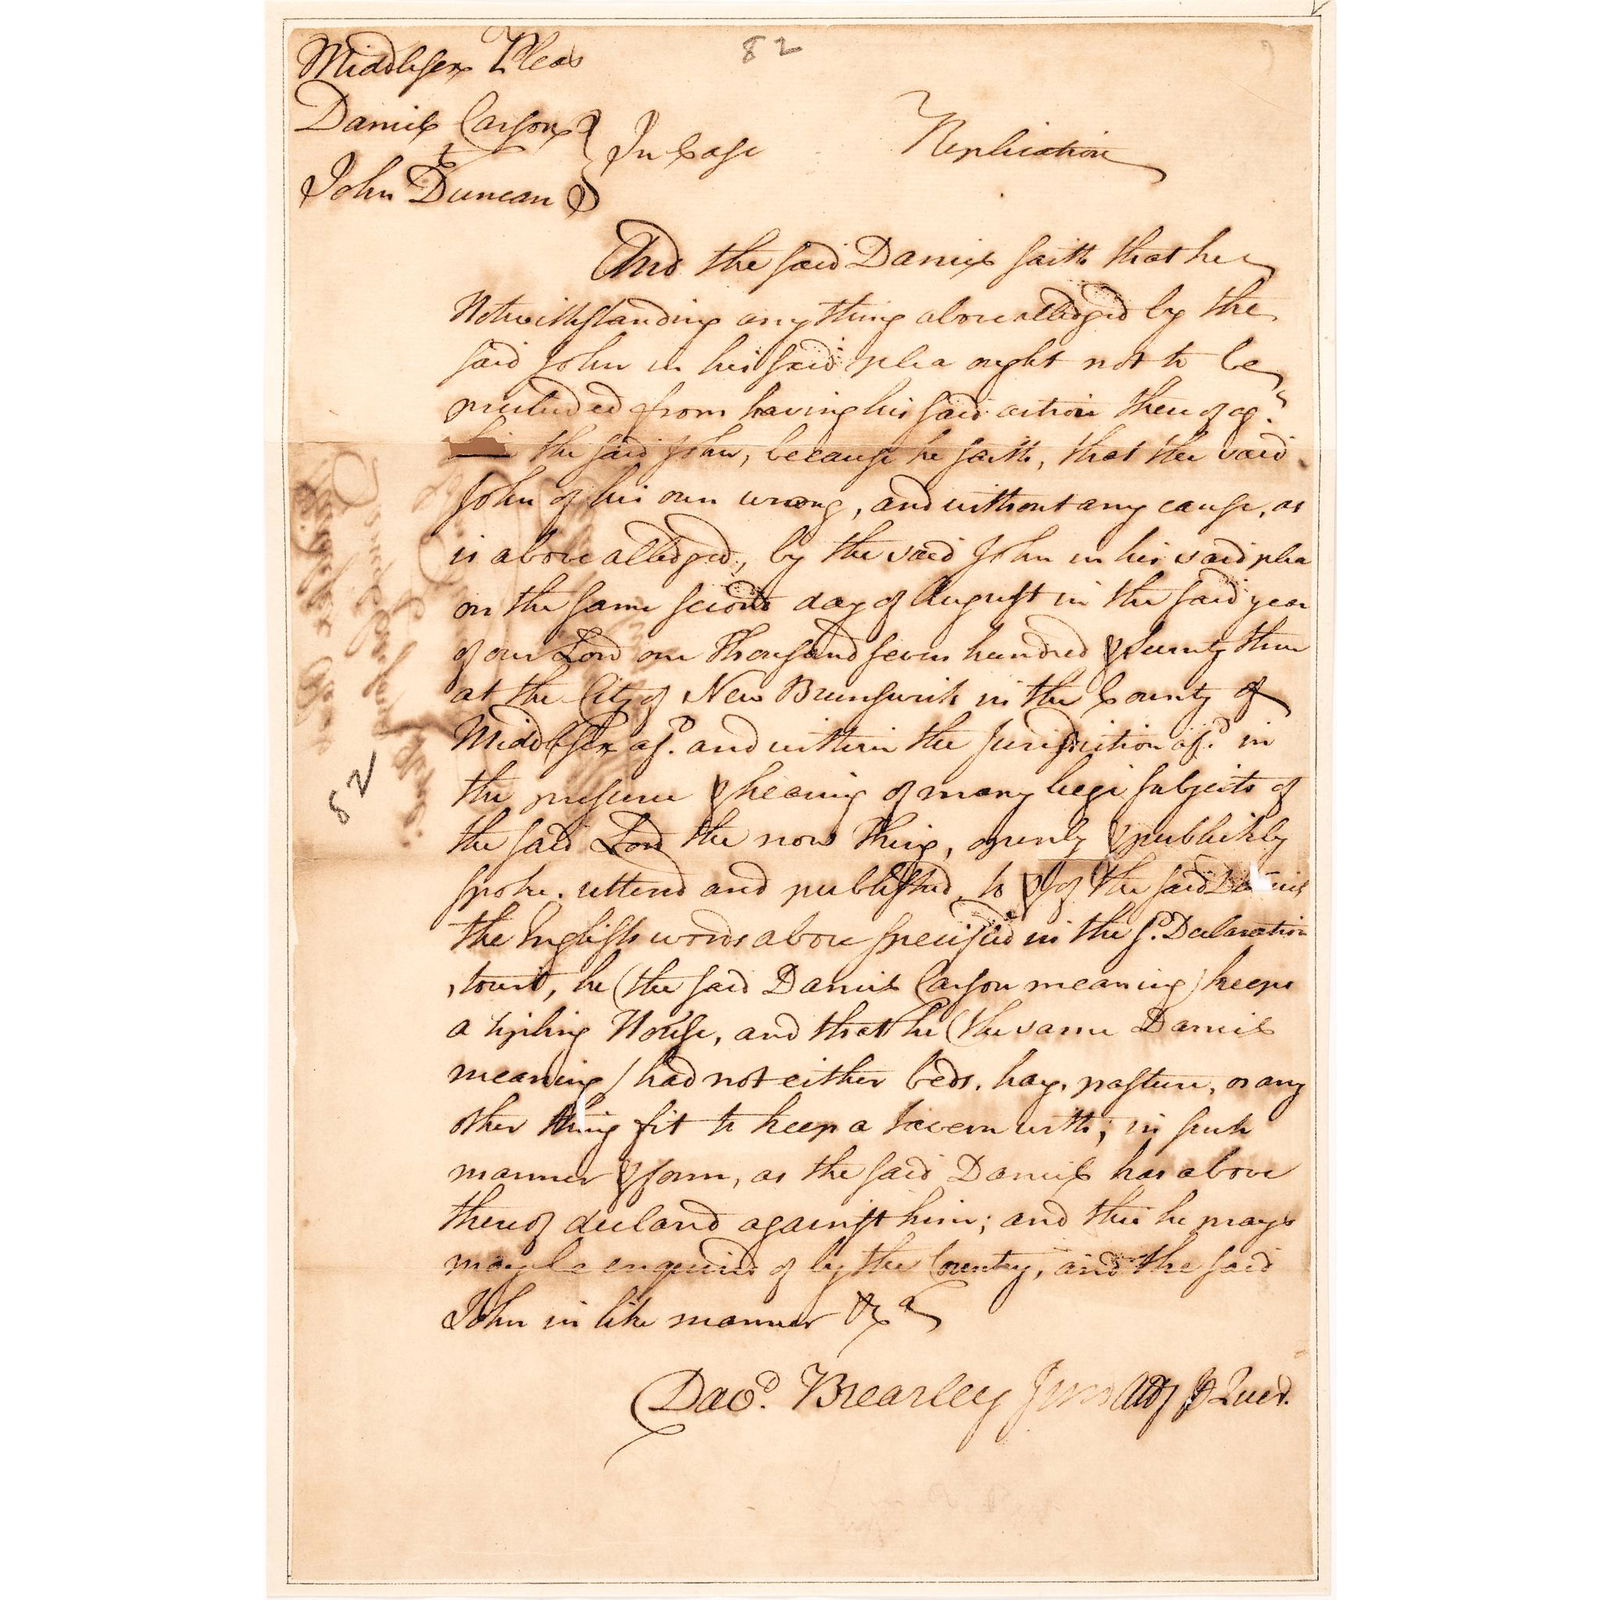 82
Middlesex Pleas
Daniel Carson
& } In Case Replication
John Duncan
And the said Daniel saith that he
Notwithstanding any thing above alledged by the
said John in his said plea ought not to be
precluded from having his said action thereof ag.t
the said John, because he saith, that the said
John of his own wrong, and without any cause, as
is above alledged, by the said John in his said plea
on the same second day of August in the said year
of our Lord one Thousand seven hundred & seventy three
at the City of New Brunswick in the County of
Middlesex afs.d and within the Jurisdiction afs.d in
the presence & hearing of many liege subjects of
the said Lord the now King, openly & publickly
spoke, uttered and published, to & of the said Daniel
the English words above specified in the s.d Declaration
, towit, he (the said Daniel Carson meaning) keeps
a tipling House, and that he (the same Daniel
meaning) had not either beds, hay, pasture, or any
other thing fit to keep a tavern with; in such
manner & form, as the said Daniel has above
thereof declared against him; and this he prays
may be enquired of by the Country, and the said
John in like manner &c a
Dav.d Brearley Jun Att.y p Quer.
82